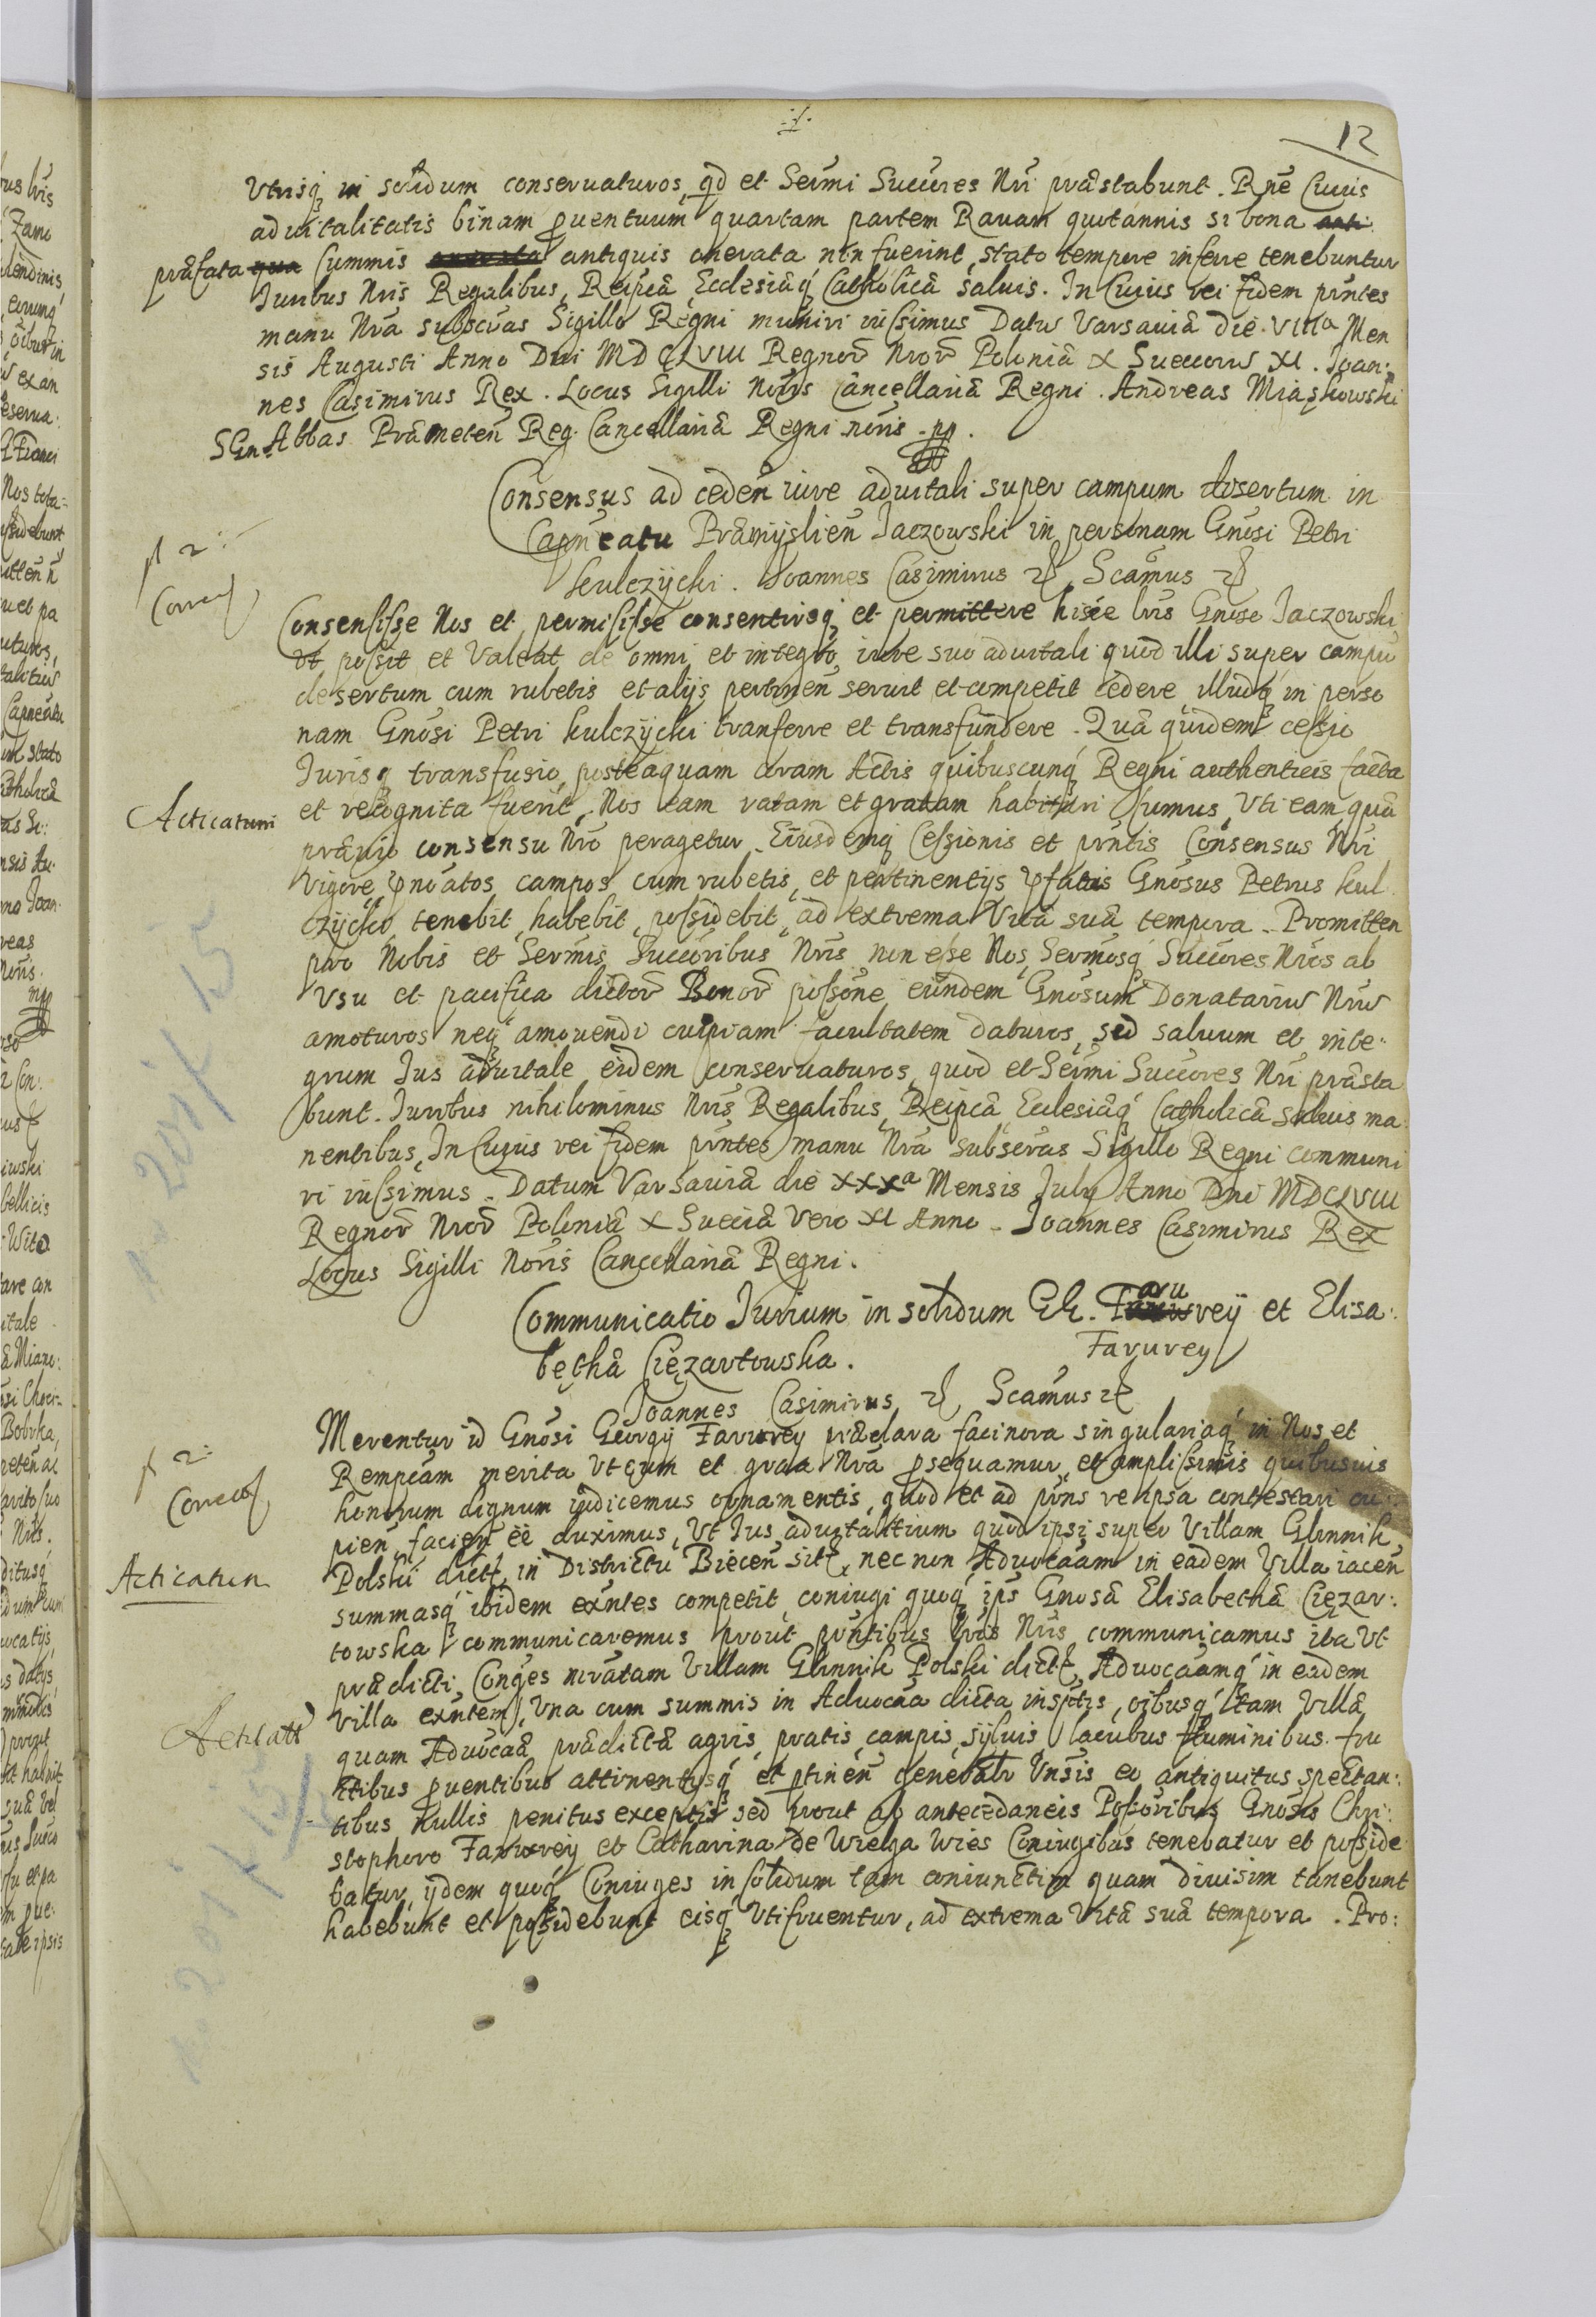 12
Vtrisq in solidum conseruaturos, qd et Sermi Succres Nri præstabunt. Rne Cuius
aduitalitatis binam prouentuum quartam partem Rauam quotannis si bona anti
præfata qua summis onerata antiquis onerata non fuerint, stato tempore inferre tenebuntur
Juribus Nris Regalibus, Reipcæ, Ecclesiæq Catholicæ saluis. In Cuius rei fidem pñtes
manu Nra subscras Sigillo Regni muniri iussimus Datū Varsauiæ die VIIIa Men
sis Augusti Anno Dni MDCLVIII Regnor Nror Poloniæ X Sueciæ XI. Joan:
nes Casimirus Rex. Locus Sigilli Noris Cancellariæ Regni. Andreas Miaskowski
SGn. Abbas Præmeten Reg. Cancellariæ Regni noris. pp.
Consensus ad ceden iure aduitali super campum desertum in
Capneatu Præmyslien Jaczowski in personam Gnosi Petri
Kulczycki. Joannes Casimirus Scamus
p 2:
Correct
Consensisse Nos et permisisse consentireq et permittere hisce lris Gnoso Jaczowski
vt possit et Valeat de omni et integro iure suo aduitali quod illi super campū
desertum cum rubetis et alijs pertinen seruit et competit cedere illudq in perso
nam Gnosi Petri Kulczycki tranferre et transfundere. Quæ quidem cessio
Jurisq transfusio, posteaquam coram Actis quibuscunq Regni authenticis facta
Acticatum
et recognita fuerit, Nos eam ratam et gratam habituri sumus, Vti eam quæ
præuio consensu Nro peragetur. Eiusdemq Cessionis et pñtis Consensus Nri
vigore pnoatos campos cum rubetis, et pertinentijs pfatus Gnosus Petrus Kul
czycki, tenebit, habebit, possidebit, ad extrema Vitæ suæ tempora. Promitten
pro Nobis et Sermis Succoribus Nris, non esse Nos, Sermosq Succores Nros ab
Vsu et pacifica dictor Bonor possone eundem Gnosum Donatariū Nrū
amoturos neq amouendi cuipiam facultatem daturos, sed saluum et inte-
grum Jus aduitale eidem conseruaturos, quod et Sermi Succores Nri præsta
bunt. Juribus nihilominus Nris Regalibus, Reipcæ, Ecclesiæq Catholicæ saluis ma
nentibus, In Cuius rei fidem pñtes manu Nra subscras Sigillo Regni communi
ri iussimus. Datum Varsauiæ die XXXa Mensis July Anno Dni MDCLVIII
Regnor Nror Poloniæ X Sueciæ Vero XI Anno. Joannes Casimirus Rex
Locus Sigilli Noris Cancellariæ Regni.
Communicatio Jurium in solidum GG. Faruvrey et Elisa:
bethæ Ciezartowska.
Faruvrey
Joannes Casimirus Scamus
Merentur id Gnosi Georgij Faruvrey præclara facinora singulariaq in Nos et
p 2:
Rempcam merita Vt cum et graa Nra prosequamur, et amplissimis quibusuis
Correct
honorum dignum iudicemus ornamentis, quod et ad pñs re ipsa contestari cu
pien, facien eê duximus, Vt Jus aduitalitium quod ipsi super Villam Glinnik
Acticatum
Polski dict, in Districtu Biecen sit, nec non Aduocaam in eadem Villa iacen
summasq ibidem exntes competit, coniugi quoq ips Gnosæ Elisabethæ Ciezar:
towska communicaremus prout pñtibus lris Nris communicamus ita Vt
prædicti Conges mratam Villam Glinnik Polski dict, Aduocaamq in eadem
villa exntem, Vna cum summis in Aduocaa dicta insptis, oibusq tam Villæ
quam Aduocaæ prædictæ agris, pratis, campis, syluis, lacubus fluminibus fru
ctibus prouentibus attinentijsq et ptinen generalr Vnsis ex antiquitus spectan:
tibus nullis penitus exceptis sed prout ab antecedaneis Possoribus Gnosis Chri
stophoro Faruvrey et Catharina de Wielga Wies Coniugibus tenebatur et posside
batur, ijdem quoq Coniuges in solidum tam coniunctim quam diuisim tenebunt
habebunt et possidebunt eisq Vtifruentur, ad extrema Vitæ suæ tempora. Pro: